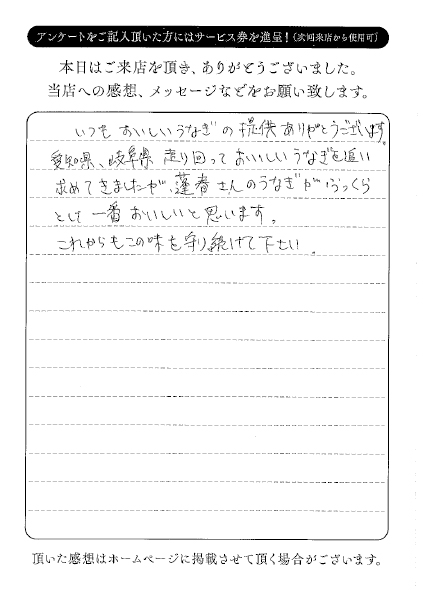 アンケートをご記入頂いた方にはサービス券を進呈！（次回来店から使用可）
本日はご来店を頂き、ありがとうございました。
当店への感想、メッセージなどをお願い致します。
いつもおいしいうなぎの提供ありがとうございます。
愛知県、岐阜県走り回っておいしいうなぎを追い
求めてきましたが、蓬春さんのうなぎがふっくら
として一番おいしいと思います。
これからもこの味を守り続けて下さい。
頂いた感想はホームページに掲載させて頂く場合がございます。